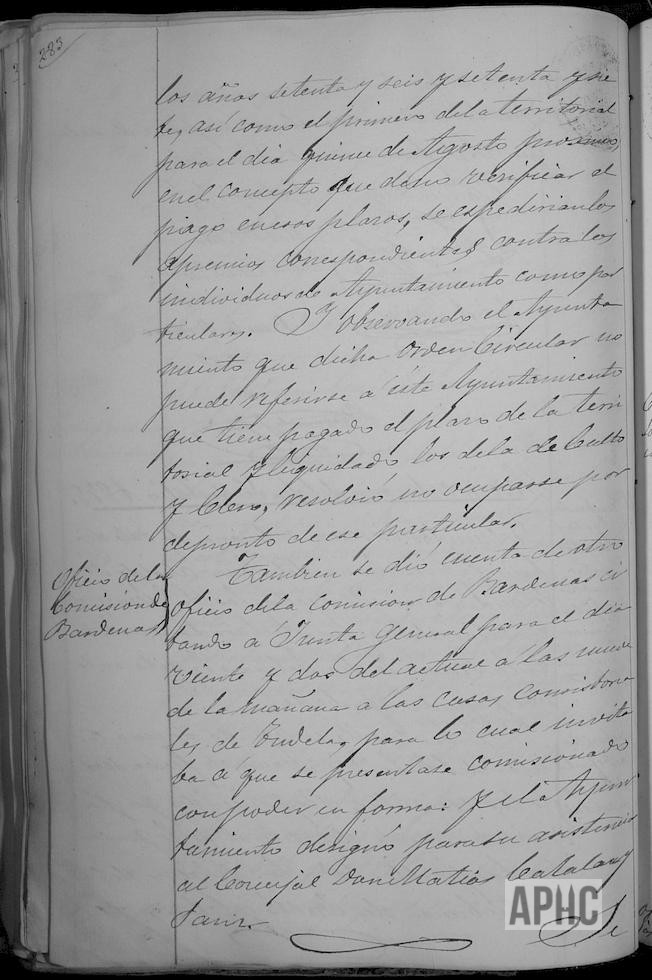 283
los años setenta y seis y setenta y sie
te, así como el primero de la territorial
para el dia quince de Agosto proximo,
en el concepto que de no verificar el
pago en esos plazos, se espedirian los
apremios correspondientes contra los
individuos de Ayuntamiento como par
ticulares. Y observando el Ayunta
miento que dicha orden Circular no
puede referirse a éste Ayuntamiento
que tiene pagado el plazo de la terri
torial y liquidado los de la de Culto
y Clero, resolvió no ocuparse por
de pronto de ese particular.
Oficio de la
Comision de
Bardenas
Tambien se dió cuenta de otro
oficio de la comision de Bardenas ci
tando á Junta general para el dia
veinte y dos del actual á las nueve
de la mañana a las casas consistoria
les de Tudela, para lo cual invita
ba á que se presentase comisionado
con poder en forma: y el Ayun
tamiento designó para su asistencia
al Concejal Don Matias Catalan y
Sanz.
Se
APHC